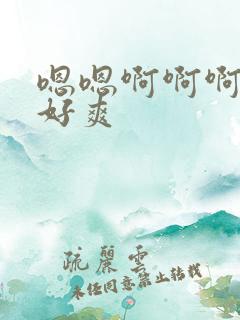 嗯嗯啊啊啊
好爽
疏丽云
未经同意禁止转载